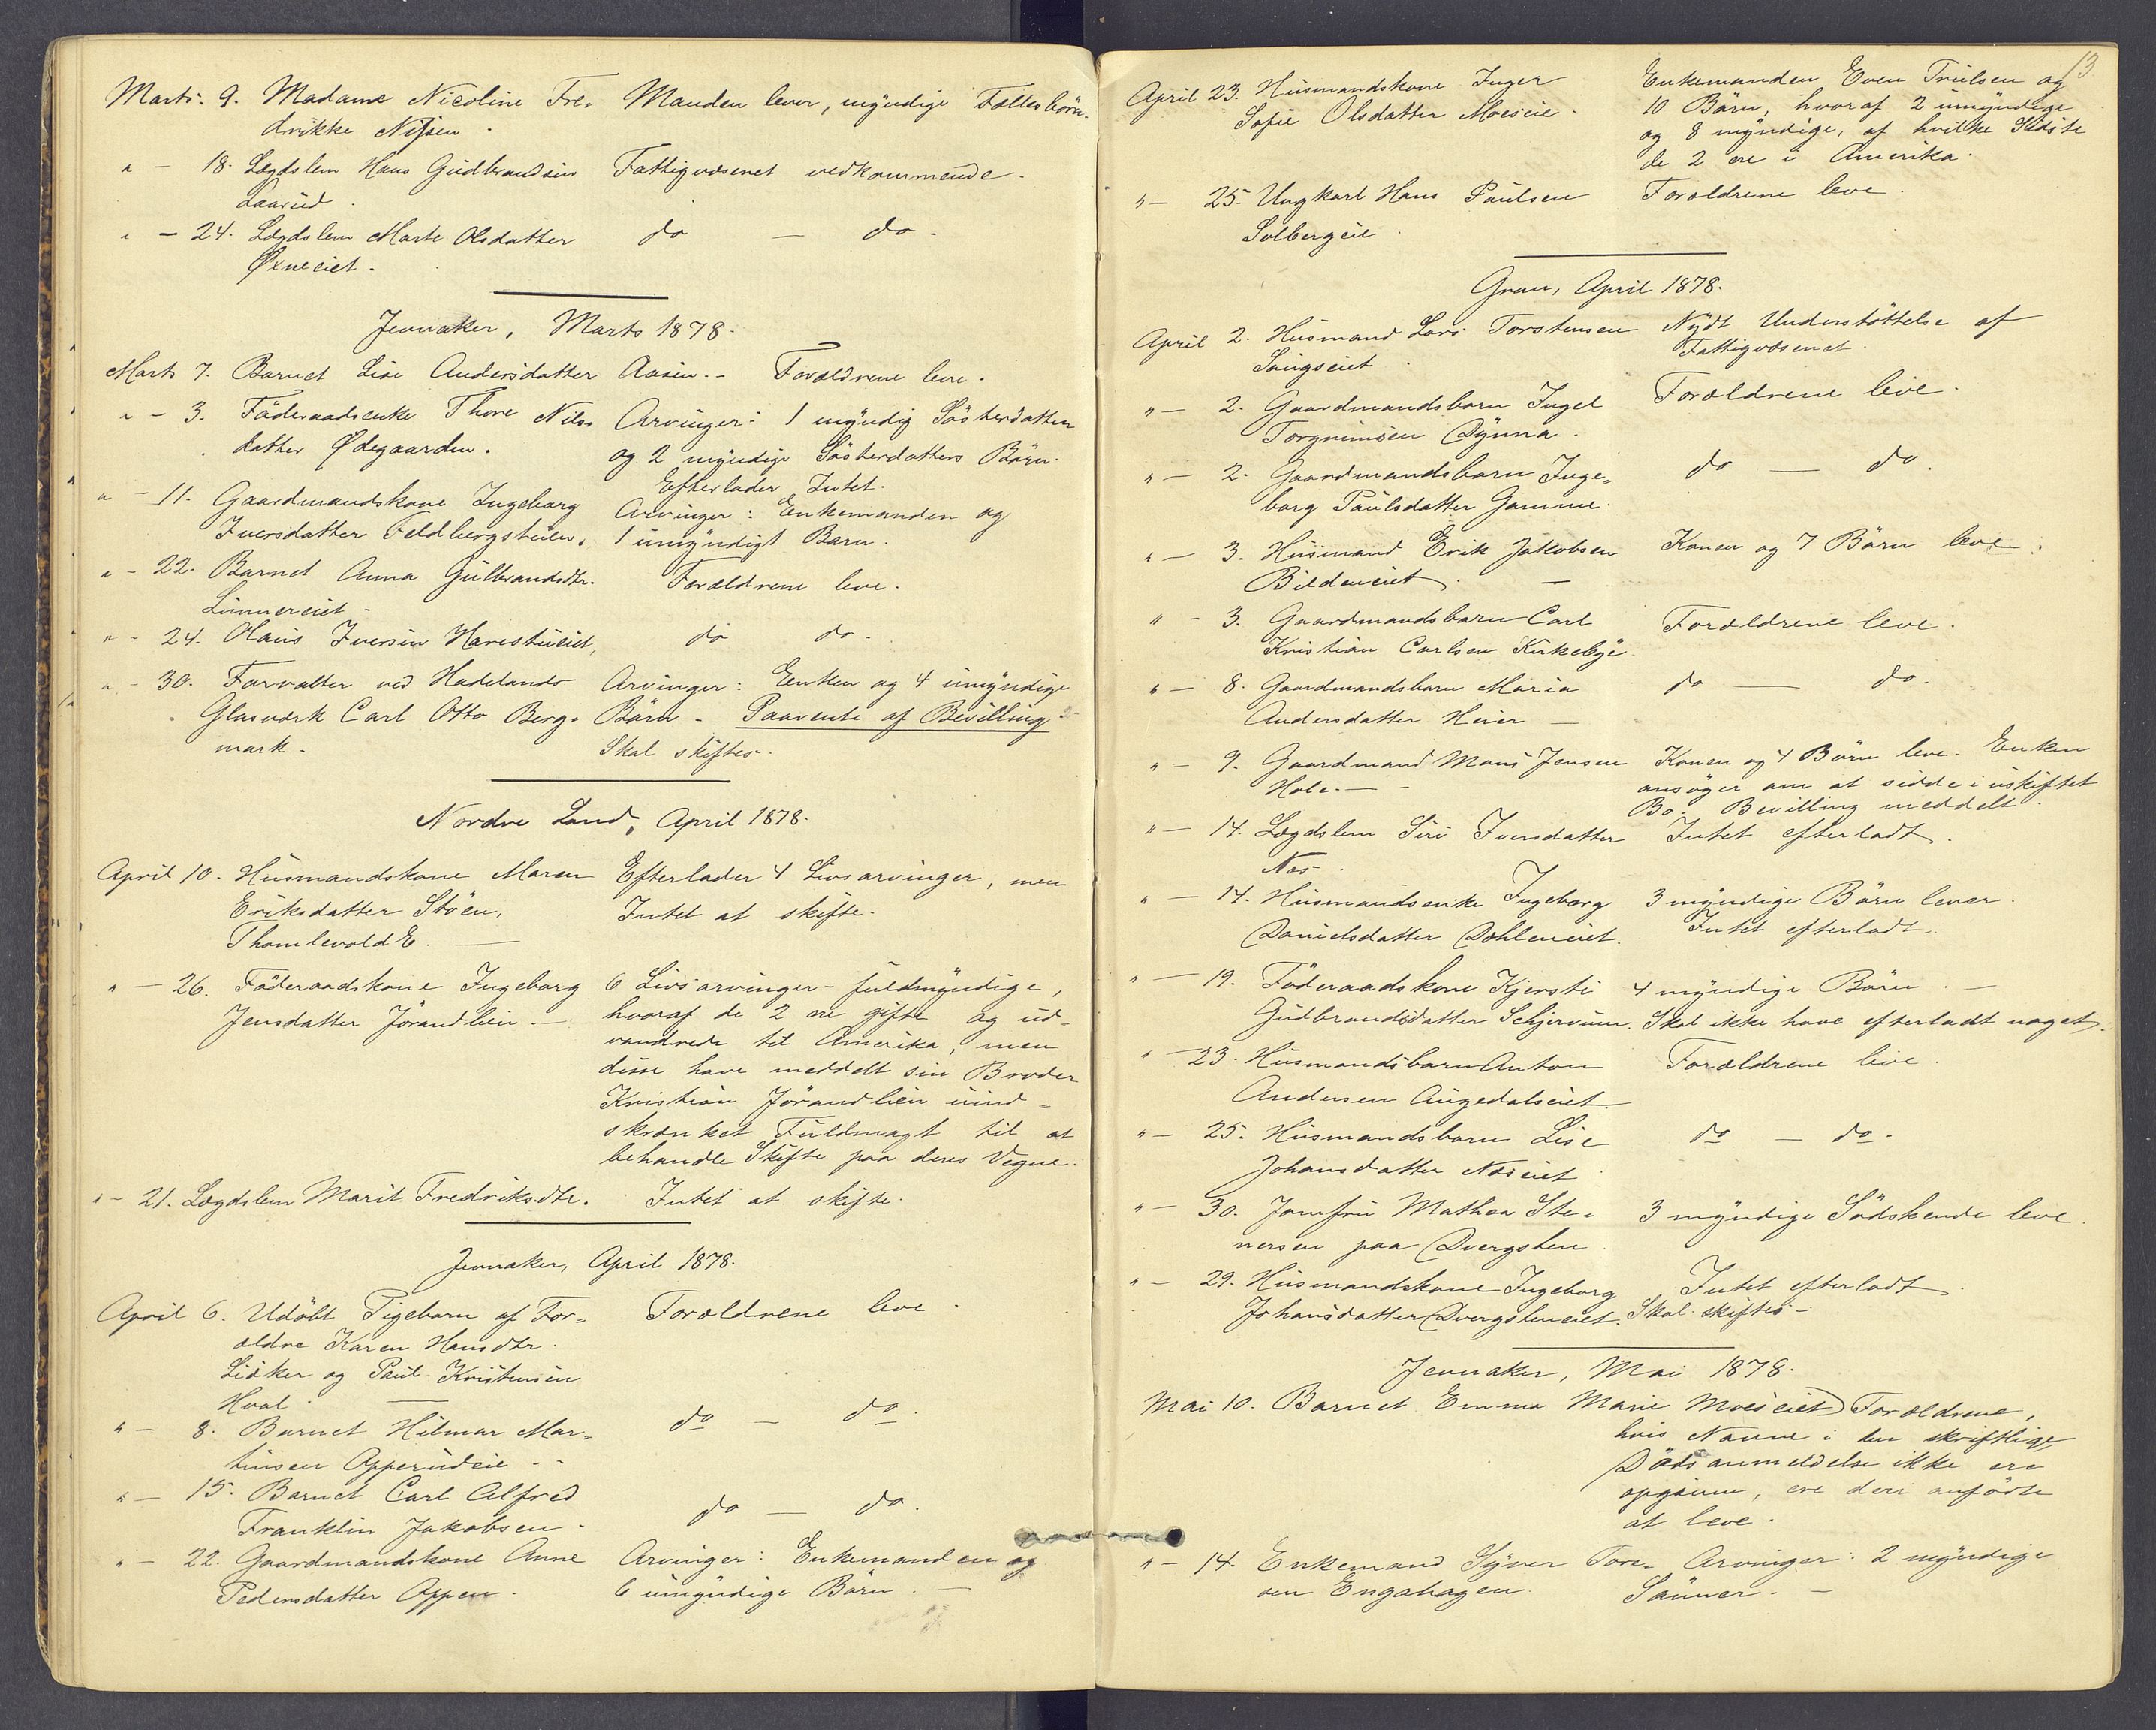 Marts. 9. Madame Nicoline Fre- Manden lever, myndige Fællesbørn.
drikke Nissen.
" - 18. Lægdslem Hans Gudbrandsen Fattigvæsenet vedkommende.
Laarud.
" - 24. Lægdslem Marte Olsdatter do - do.
Øxneeiet.
Jevnaker, Marts 1878.
Marts 7. Barnet Lise Andersdatter Aasen. - Forældrene leve.
" - 3. Föderaadsenke Thore Nils- Arvinger: 1 myndig Sösterdatter
datter Ødegaarden. og 2 myndige Sösterdatters Börn.
Efterlader Intet.
" - 11. Gaardmandskone Ingeborg Arvinger: Enkemanden og
Iversdatter Feldbergstuen. 1 umyndigt Barn.
" - 22. Barnet Anna Gulbrandsdtr. Forældrene leve.
Linnereiet.
" - 24. Olaus Iversen Harestueiet, do do.
" - 30. Forvalter ved Hadelands Arvinger: Enken og 4 umyndige
Glasværk Carl Otto Berg- Börn - Paavente af Bevilling.
mark. Skal skiftes.
Nordre Land, April 1878.
April 10. Husmandskone Maren Efterlader 4 Livsarvinger, men
Eriksdatter Stöen, Intet at skifte.
Thomlevold E.
" - 26. Föderaadskone Ingeborg 6 Livsarvinger - fuldmyndige,
Jensdatter Jörandlien. - hvoraf de 2 ere gifte og ud-
vandrede til Amerika, men
disse have meddelt sin Broder
Kristian Jörandlien uind-
skrænket Fuldmagt til at
behandle Skifte paa deres Vegne.
" - 21. Lægdslem Marit Fredriksdtr. Intet at skifte.
Jevnaker, April 1878.
April 6. Udöbt Pigebarn af For- Forældrene leve.
ældre Karen Hansdtr.
Lidker og Paul Kristensen
Hval.
" - 8. Barnet Hilmar Mar- do - do.
tinsen Opperudeie -
" - 15. Barnet Carl Alfred
Franklin Jakobsen. do - do.
" - 22. Gaardmandskone Anne Arvinger: Enkemanden og
Pedersdatter Oppen. 6 umyndige Börn. -
13
April 23. Husmandskone Inger Enkemanden Even Trulsen og
Sofie Olsdatter Moeseie. 10 Börn, hvoraf 2 umyndige
og 8 myndige, af hvilke Sidste
de 2 ere i Amerika.
" - 25. Ungkarl Hans Paulsen Forældrene leve.
Solbergeie.
Gran, April 1878.
April 2. Husmand Lars Torstensen Nydt Understöttelse af
Fattigvæsenet.
" - 2. Gaardmandsbarn Ingel Forældrene leve.
Torgrimsen Dynna.
" - 2. Gaardmandsbarn Inge- do - do.
borg Paulsdatter Gamme.
" - 3. Husmand Erik Jakobsen Konen og 7 Börn leve.
Bildeneiet. -
" - 3. Gaardmandsbarn Carl Forældrene leve.
Kristian Carlsen Kirkebye.
" - 8. Gaardmandsbarn Maria do - do.
Andersdatter Heier -
" - 9. Gaardmand Mons Jensen Konen og 4 Börn leve. Enken
Hole. - ansöger om at sidde i uskiftet
Bo. Bevilling meddelt.
" - 14. Lægdslem Siri Iversdatter Intet efterladt.
Næs.
" - 14. Husmandsenke Ingeborg 3 myndige Börn lever.
Danielsdatter Dæhleneiet. Intet efterladt.
" - 19. Föderaadskone Kjersti 4 myndige Börn. -
Gudbrandsdatter Schjervum. Skal ikke have efterladt noget.
" - 23. Husmandsbarn Anton Forældrene leve.
Andersen Augedalseiet.
" - 25. Husmandsbarn Lise do - do.
Johansdatter Næseiet.
" - 30. Jomfru Mathea Ste- 3 myndige Södskende leve.
nersen paa Dvergsten.
" - 29. Husmandskone Ingeborg Intet efterladt.
Johansdatter Dvergsteneiet. Skal skiftes -
Jevnaker, Mai 1878.
Mai 10. Barnet Emma Marie Moeseiet Forældrene,
hvis Navne i den skriftlige
Dödsanmeldelse ikke ere
opgivne, ere deri anförte
at leve.
" - 14. Enkemand Syver Tore- Arvinger: 2 myndige
sen Engahagen. Sönner. -